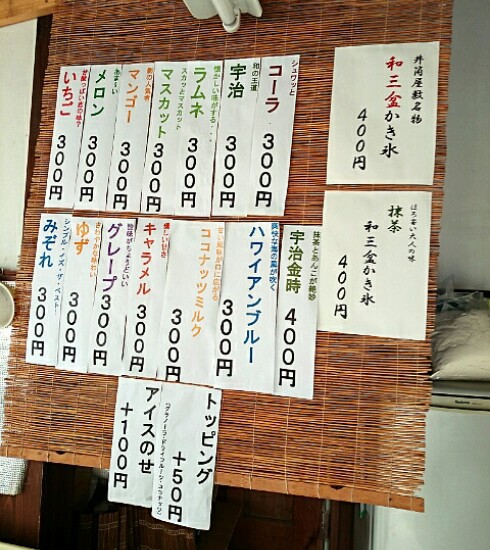 井筒屋敷名物
和三盆かき氷
400円
ほろ苦い大人の味
抹茶
和三盆かき氷
400円
シュワッと
コーラ
300円
和の王道
宇治
300円
懐かしい味がする・・
ラムネ
300円
スカッとマスカット
マスカット
300円
街の人気者
マンゴー
300円
あま〜い
メロン
300円
甘酸っぱい恋の味？
いちご
300円
抹茶とあんこが絶妙
宇治金時
400円
爽快な海の風が吹く
ハワイアンブルー
300円
ココナッツミルク
300円
優しい甘さ
キャラメル
300円
グレープ
300円
ゆず
300円
シンプル・イズ・ザ・ベスト
みぞれ
300円
トッピング
+50円
アイスのせ
+100円